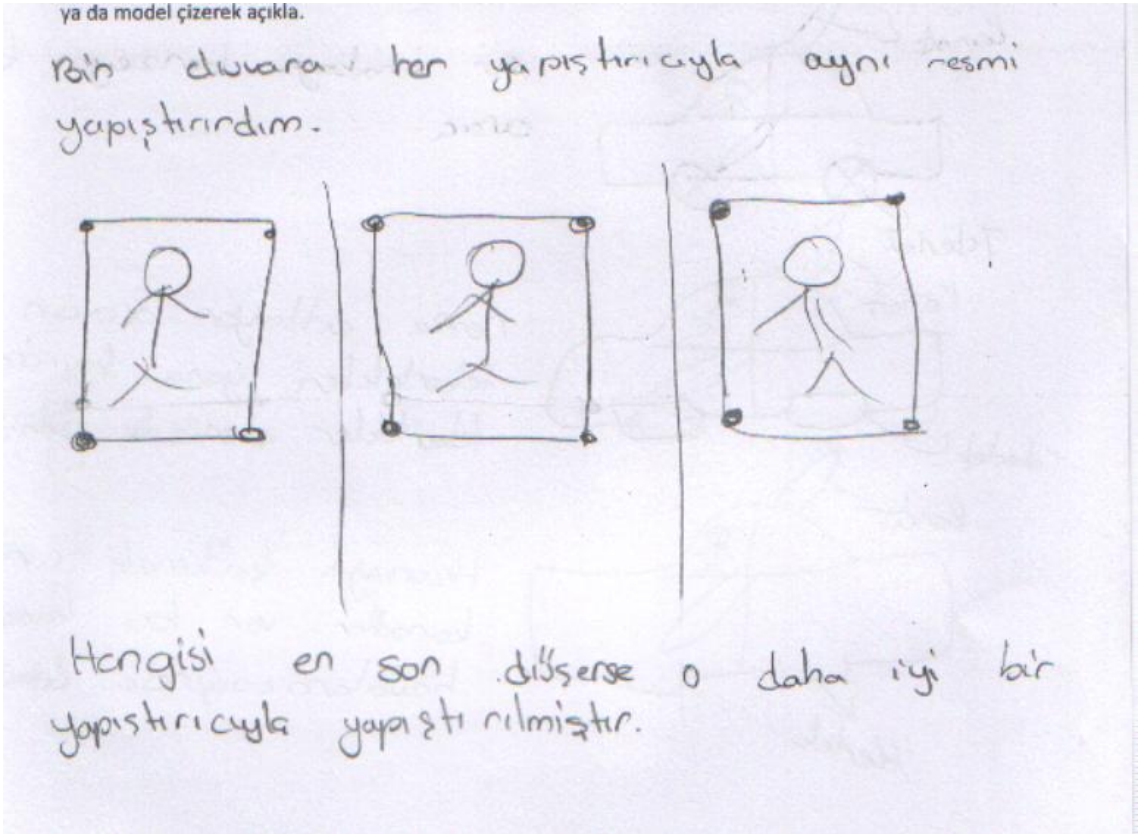 ya da model çizerek açıkla.
Bir duvara her yapıştırıcıyla aynı resmi
yapıştırırdım.
Hangisi en son düşerse o daha iyi bir
yapıştırıcıyla yapıştırılmiştır.